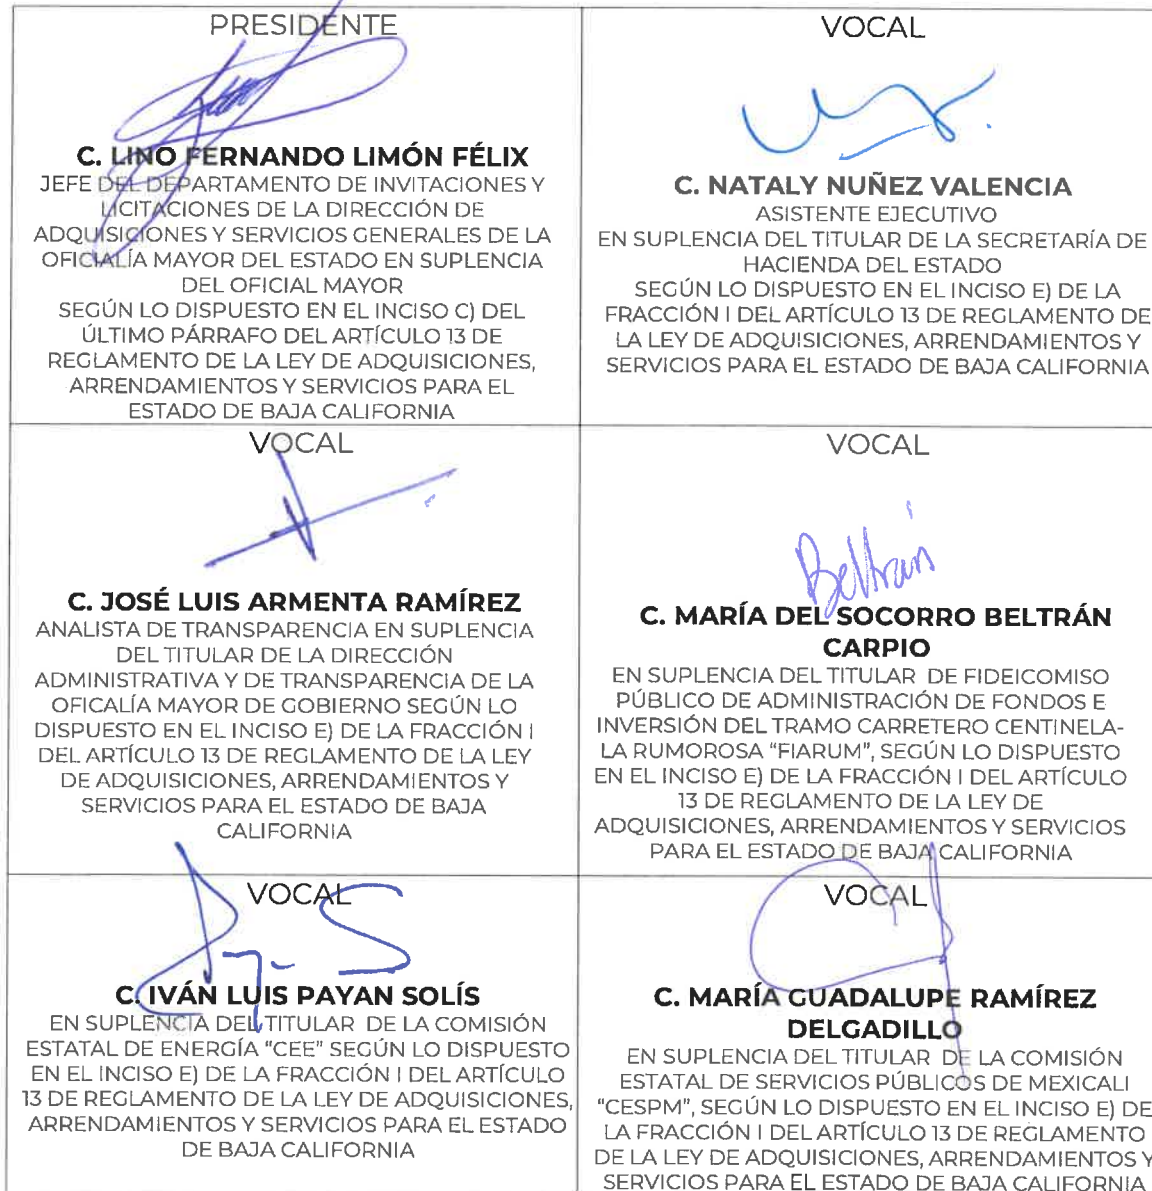 PRESIDENTE
C. LINO FERNANDO LIMÓN FÉLIX
JEFE DEL DEPARTAMENTO DE INVITACIONES Y
LICITACIONES DE LA DIRECCIÓN DE
ADQUISICIONES Y SERVICIOS GENERALES DE LA
OFICIALÍA MAYOR DEL ESTADO EN SUPLENCIA
DEL OFICIAL MAYOR
SEGÚN LO DISPUESTO EN EL INCISO C) DEL
ÚLTIMO PÁRRAFO DEL ARTÍCULO 13 DE
REGLAMENTO DE LA LEY DE ADQUISICIONES,
ARRENDAMIENTOS Y SERVICIOS PARA EL
ESTADO DE BAJA CALIFORNIA
VOCAL
C. NATALY NUÑEZ VALENCIA
ASISTENTE EJECUTIVO
EN SUPLENCIA DEL TITULAR DE LA SECRETARÍA DE
HACIENDA DEL ESTADO
SEGÚN LO DISPUESTO EN EL INCISO E) DE LA
FRACCIÓN I DEL ARTÍCULO 13 DE REGLAMENTO DE
LA LEY DE ADQUISICIONES, ARRENDAMIENTOS Y
SERVICIOS PARA EL ESTADO DE BAJA CALIFORNIA
VOCAL
C. JOSÉ LUIS ARMENTA RAMÍREZ
ANALISTA DE TRANSPARENCIA EN SUPLENCIA
DEL TITULAR DE LA DIRECCIÓN
ADMINISTRATIVA Y DE TRANSPARENCIA DE LA
OFICALÍA MAYOR DE GOBIERNO SEGÚN LO
DISPUESTO EN EL INCISO E) DE LA FRACCIÓN I
DEL ARTÍCULO 13 DE REGLAMENTO DE LA LEY
DE ADQUISICIONES, ARRENDAMIENTOS Y
SERVICIOS PARA EL ESTADO DE BAJA
CALIFORNIA
VOCAL
Beltrán
C. MARÍA DEL SOCORRO BELTRÁN
CARPIO
EN SUPLENCIA DEL TITULAR DE FIDEICOMISO
PÚBLICO DE ADMINISTRACIÓN DE FONDOS E
INVERSIÓN DEL TRAMO CARRETERO CENTINELA-
LA RUMOROSA “FIARUM”, SEGÚN LO DISPUESTO
EN EL INCISO E) DE LA FRACCIÓN I DEL ARTÍCULO
13 DE REGLAMENTO DE LA LEY DE
ADQUISICIONES, ARRENDAMIENTOS Y SERVICIOS
PARA EL ESTADO DE BAJA CALIFORNIA
VOCAL
C. IVÁN LUIS PAYAN SOLÍS
EN SUPLENCIA DEL TITULAR DE LA COMISIÓN
ESTATAL DE ENERGÍA “CEE” SEGÚN LO DISPUESTO
EN EL INCISO E) DE LA FRACCIÓN I DEL ARTÍCULO
13 DE REGLAMENTO DE LA LEY DE ADQUISICIONES,
ARRENDAMIENTOS Y SERVICIOS PARA EL ESTADO
DE BAJA CALIFORNIA
VOCAL
C. MARÍA GUADALUPE RAMÍREZ
DELGADILLO
EN SUPLENCIA DEL TITULAR DE LA COMISIÓN
ESTATAL DE SERVICIOS PÚBLICOS DE MEXICALI
“CESPM”, SEGÚN LO DISPUESTO EN EL INCISO E) DE
LA FRACCIÓN I DEL ARTÍCULO 13 DE REGLAMENTO
DE LA LEY DE ADQUISICIONES, ARRENDAMIENTOS Y
SERVICIOS PARA EL ESTADO DE BAJA CALIFORNIA